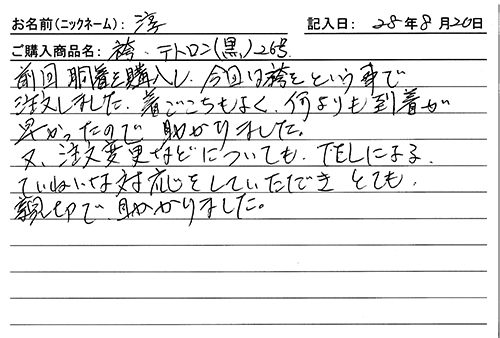 お名前(ニックネーム): 淳 記入日: 28年8月20日
ご購入商品名: 袴・テトロン(黒) 26号
前回胴着を購入し、今回は袴をという事で
注文しました。着ごこちもよく、何よりも到着が
早かったので助かりました。
又、注文変更などについても、TELによる、
ていねいな対応をしていただき とても、
親切で、助かりました。